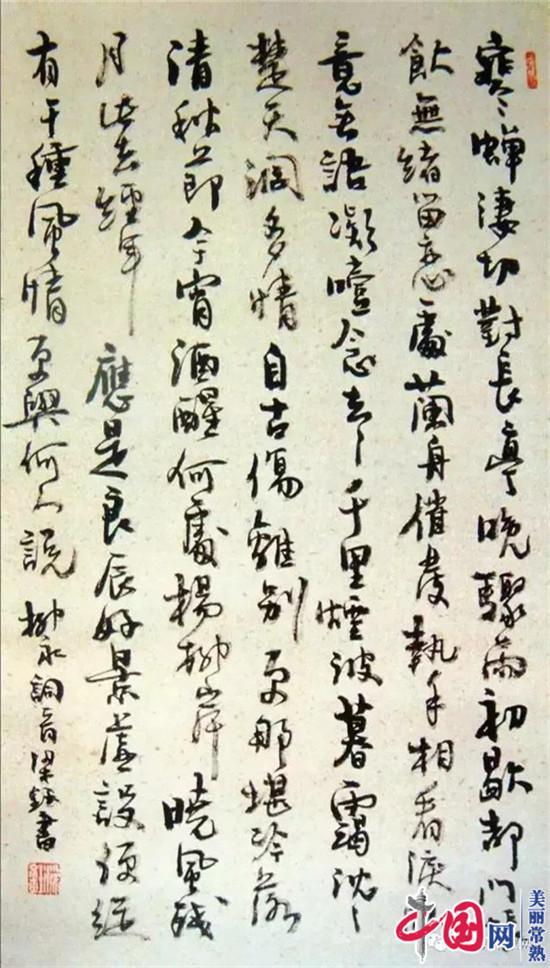 寒蟬淒切對長亭晚驟雨初歇都門帳
飲無緒留恋處蘭舟催發執手相看淚
竟無語凝噎念去〻千里煙波暮靄沈〻
楚天闊多情自古傷離別更那堪冷落
清秋節今宵酒醒何處楊柳岸曉風殘
月此去經年應是良辰好景虛設便縱
有千種風情更與何人說柳永詞書
中国网
美丽常熟